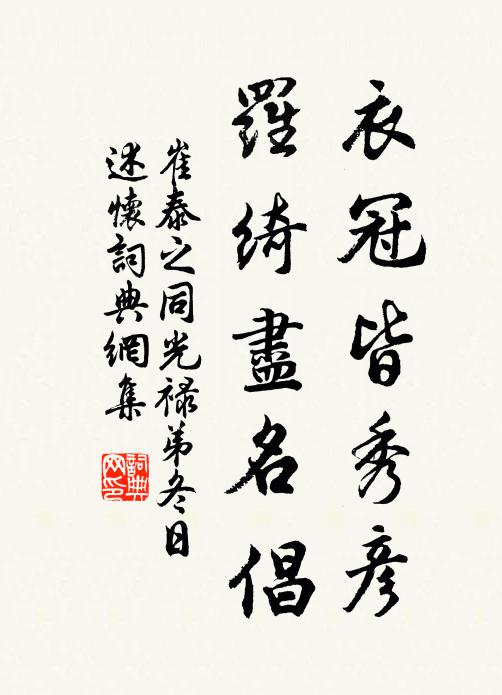 衣冠皆秀彦
羅綺盡名倡
崔泰之同光禄弟冬日
述懷詞典網集
詞典网印